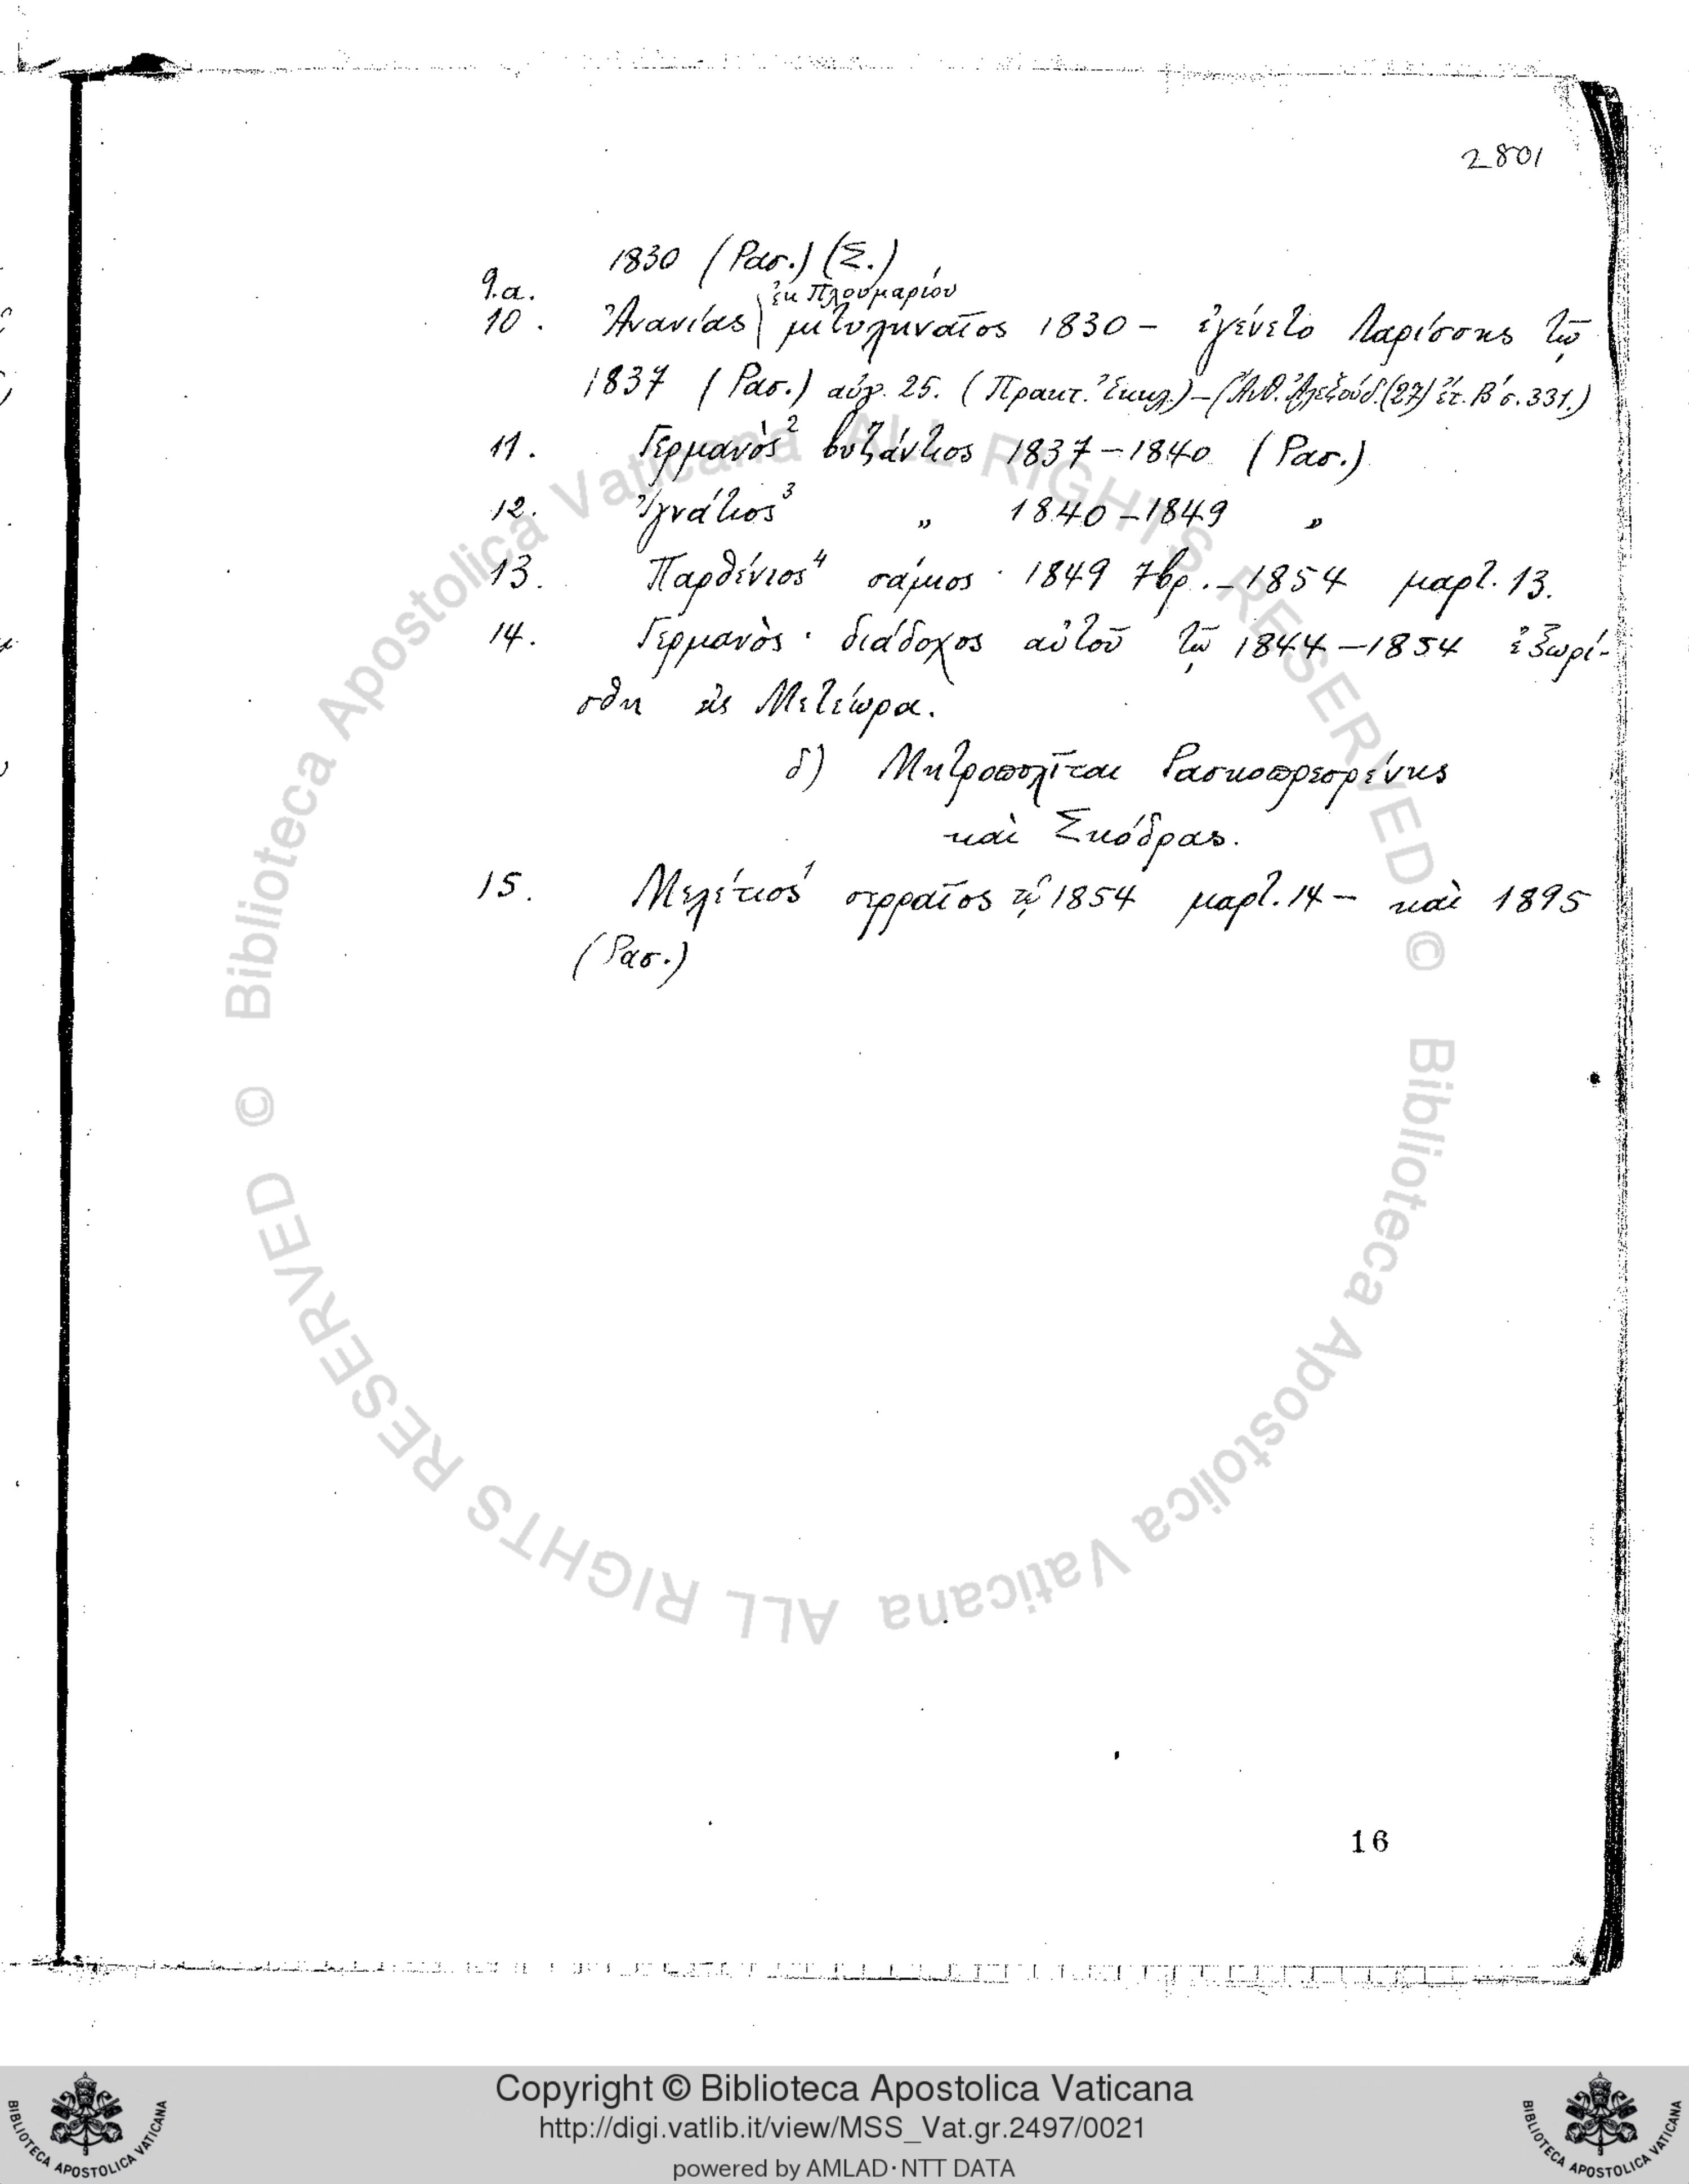 2801
1830 (Ρασ.) (Σ.)
9.α. ἐκ Πλουμαρίου
10. Ἀνανίας μιτυληναῖος 1830 – ἐγένετο Λαρίσσης τῷ
1837 (Ρασ.) αὐγ. 25. (Πρακτ. Ἐκκλ.) – (Ἀνθ. Ἀλεξούδ. (27) ἔτ. Β΄ σ. 331.)
11. Γερμανὸς² βυζάντιος 1837 – 1840 (Ρασ.)
12. Ἰγνάτιος³ „ 1840 – 1849 „
13. Παρθένιος⁴ σάμιος · 1849 7βρ. – 1854 μαρτ. 13.
14. Γερμανὸς · διάδοχος αὐτοῦ τῷ 1844 – 1854 ἐξωρί-
σθη εἰς Μετέωρα.
δ) Μητροπολῖται Ρασκοπρεσρένης
καὶ Σκόδρας.
15. Μελέτιος¹ σερραῖος τῷ 1854 μαρτ. 14 – καὶ 1895
(Ρασ.)
16
© Biblioteca Apostolica Vaticana ALL RIGHTS RESERVED
© Biblioteca Apostolica Vaticana ALL RIGHTS RESERVED
Copyright © Biblioteca Apostolica Vaticana
http://digi.vatlib.it/view/MSS_Vat.gr.2497/0021
powered by AMLAD·NTT DATA
BIBLIOTECA APOSTOLICA VATICANA
BIBLIOTECA APOSTOLICA VATICANA